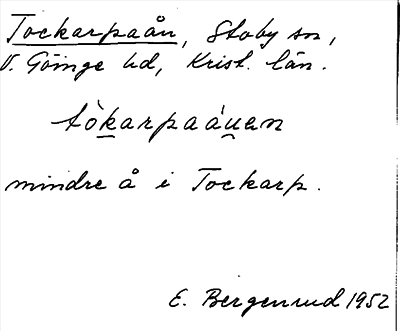 Tockarpaån, Stoby sn,
V. Göinge hd, Krist. län.
tò̀karpaáu̯an
mindre å i Tockarp.
E. Bergenrud 1952